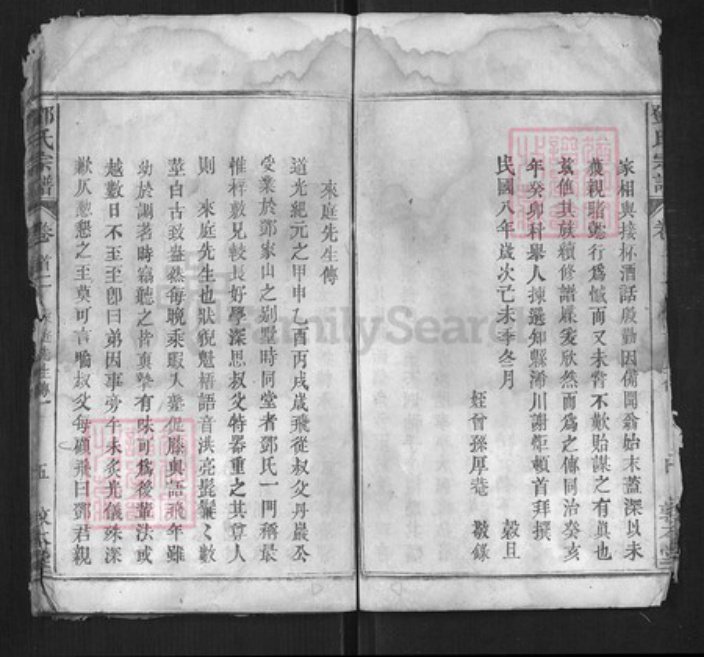 鄧氏宗譜
家相與接杯酒話殷勤因備聞翁始末蓋深以未
獲親瞻懿行爲憾而又未嘗不歎貽謀之有眞也
茲他其族續修譜屬爰欣然而爲之傳同治癸亥
年癸卯科舉人揀選知縣浠川謝煚頓首拜撰
民國八年歲次己未季冬月 穀旦
姪曾孫厚菴 敬錄
來庭先生傳
道光紀元之甲申乙酉丙戌歲飛從叔父丹巖公
受業於鄧家山之别墅時同堂者鄧氏一門稱最
惟梓敷兄較長好學深思叔父特器重之其尊人
則 來庭先生也狀貌魁梧語音洪亮髭鬚〻數
莖自古致盎然每晚乘暇入塾促膝與語飛年雖
幼於詞者時竊聽之皆眞摯有味可爲後輩法或
越數日不至至卽曰弟因事旁午未炙光儀殊深
歉仄懃懇之至莫可言喻叔父每顧飛曰鄧君親
鄧氏宗譜 卷首二 來庭先生傳 五 敦本堂
FamilySearch